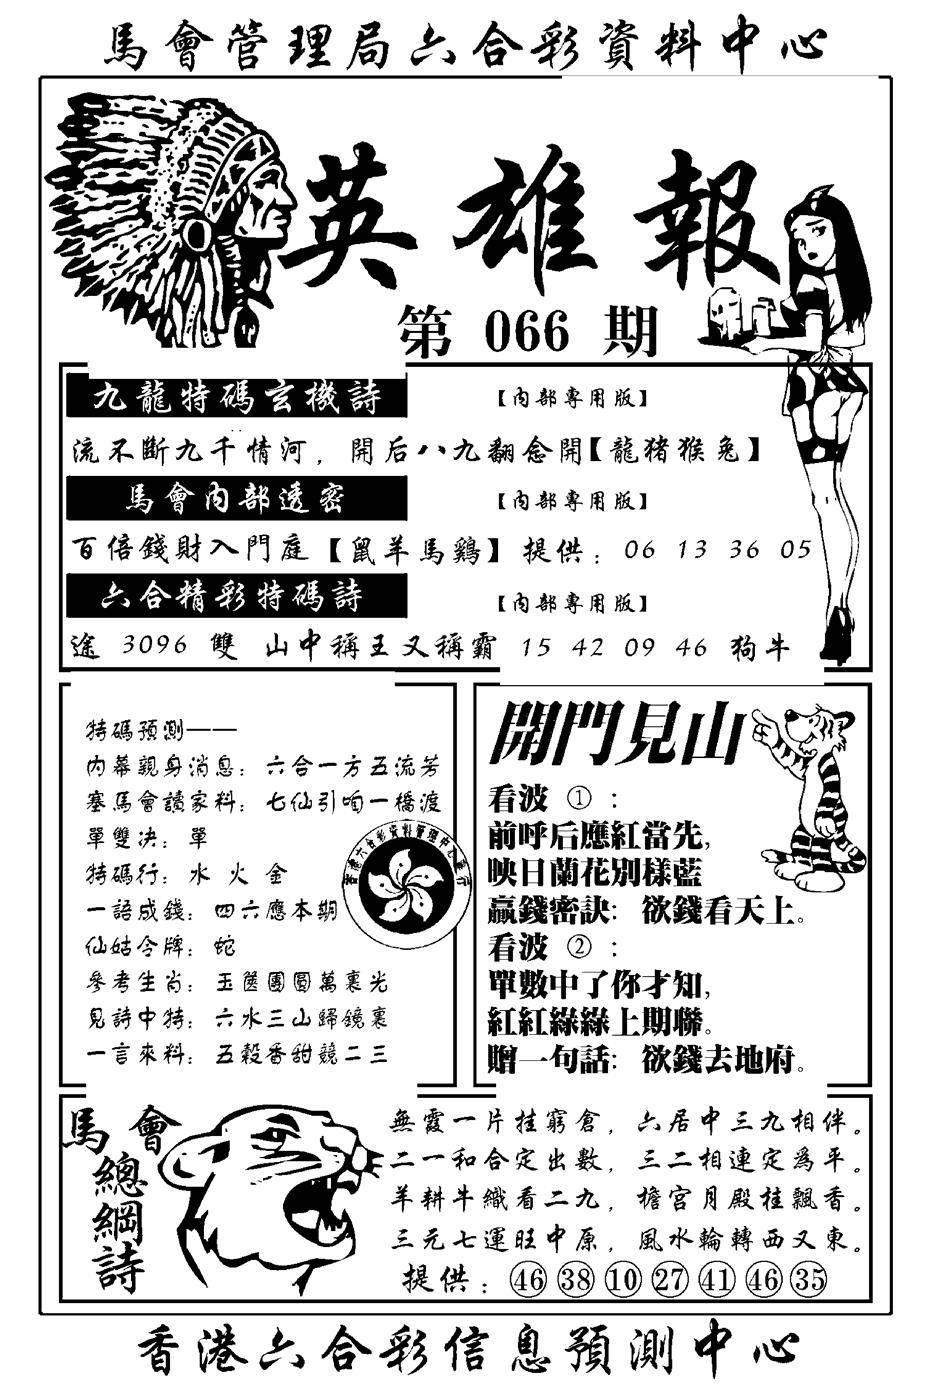 馬會管理局六合彩資料中心
英雄報
第 066 期
九龍特碼玄機詩
【內部專用版】
流不斷九千情河，開后八九翻念開【龍猪猴兔】
馬會內部透密
【內部專用版】
百倍錢財入門庭【鼠羊馬鷄】提供：06 13 36 05
六合精彩特碼詩
【內部專用版】
途 3096 雙 山中稱王又稱霸 15 42 09 46 狗牛
特碼預測——
內幕親身消息：六合一方五流芳
塞馬會讀家料：七仙引咱一橋渡
單雙決：單
特碼行：水 火 金
一語成錢：四六應本期
仙姑令牌：蛇
參考生肖：玉篋團圓萬裏光
見詩中特：六水三山歸鏡裏
一言來料：五穀香甜競二三
開門見山
看波 ①：
前呼后應紅當先,
映日蘭花別樣藍
贏錢密訣：欲錢看天上。
看波 ②：
單數中了你才知,
紅紅綠綠上期聯。
贈一句話：欲錢去地府。
馬會
總綱詩
無霞一片挂窮倉，六居中三九相伴。
二一和合定出數，三二相連定為平。
羊耕牛織看二九，檐宮月殿桂飄香。
三元七運旺中原，風水輪轉西又東。
提供：㊻㊳⑩㉗㊶㊻㉟
香港六合彩信息預測中心